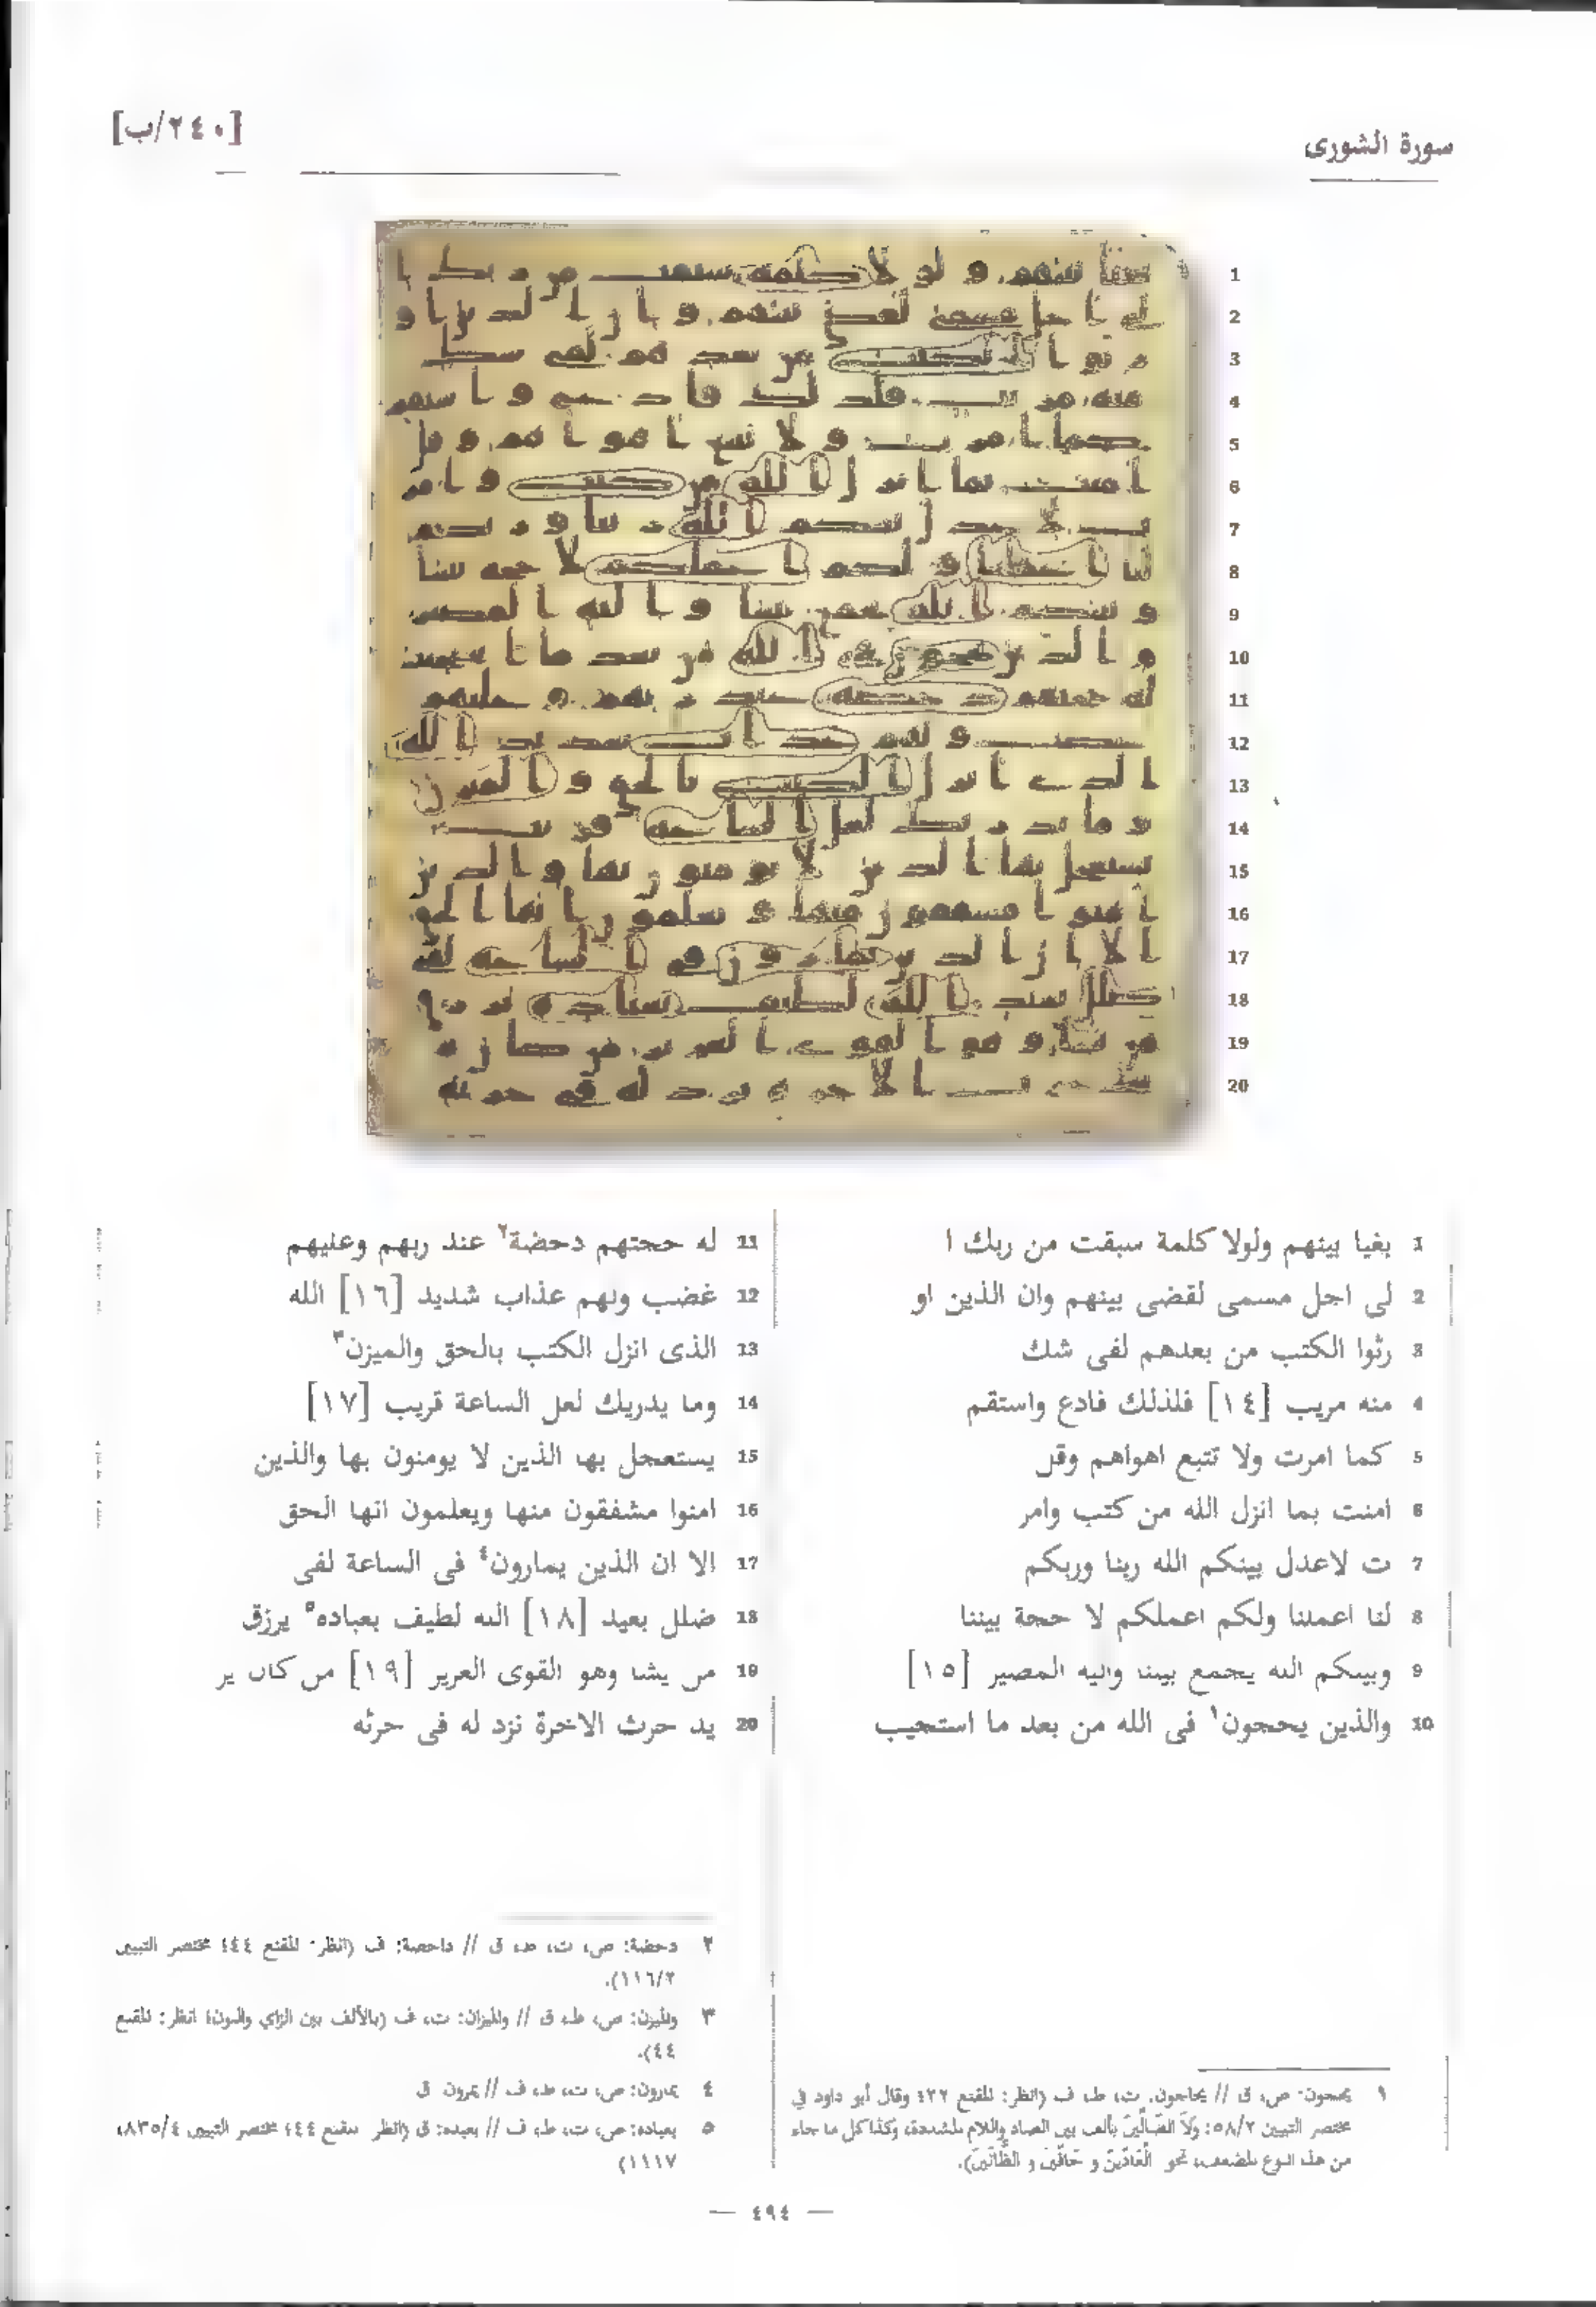 [٢٤٠/ب]
سورة الشورى
1 بغيا بينهم ولولا كلمة سبقت من ربك ا
2 لى اجل مسمى لقضى بينهم وان الذين او
3 رثوا الكتب من بعدهم لفى شك
4 منه مريب [١٤] فلذلك فادع واستقم
5 كما امرت ولا تتبع اهواهم وقل
6 امنت بما انزل الله من كتب وامر
7 ت لاعدل بينكم الله ربنا وربكم
8 لنا اعملنا ولكم اعملكم لا حجة بيننا
9 وبينكم الله يجمع بيننا واليه المصير [١٥]
10 والذين يحجون١ فى الله من بعد ما استجيب
11 له حجتهم دحضة٢ عند ربهم وعليهم
12 غضب ولهم عذاب شديد [١٦] الله
13 الذى انزل الكتب بالحق والميزن٣
14 وما يدريك لعل الساعة قريب [١٧]
15 يستعجل بها الذين لا يومنون بها والذين
16 امنوا مشفقون منها ويعلمون انها الحق
17 الا ان الذين يمارون٤ فى الساعة لفى
18 ضلل بعيد [١٨] الله لطيف بعباده٥ يرزق
19 من يشا وهو القوى العزيز [١٩] من كان ير
20 يد حرث الاخرة نزد له فى حرثه
١ يحجون: ص، ق // يحاجون: ت، ط، ف (انظر: المقنع ٤٢٢ وقال أبو داود في
مختصر التبيين ٥٨/٢: وَلاَ الضَّالِّينَ بألف بين الصاد واللام المشددة، وكذا كل ما جاء
من هذا النوع المضعف، نحو الْعَادِّينَ و حَافِّينَ و الظَّانِّينَ).
٢ دحضة: ص، ت، ط، ق // داحضة: ف (انظر: المقنع ٤٤٤ مختصر التبيين
١١٦/٢).
٣ والميزن: ص، ط، ق // والميزان: ت، ف (بالألف بين الزاي والنون؛ انظر: المقنع
٤٤).
٤ يمارون: ص، ت، ط، ف // يمرون: ق
٥ بعباده: ص، ت، ط، ف // بعبده: ق (انظر: المقنع ٤٤٤ مختصر التبيين ٨٣٥/٤،
١١١٧)
— ٤٩٤ —